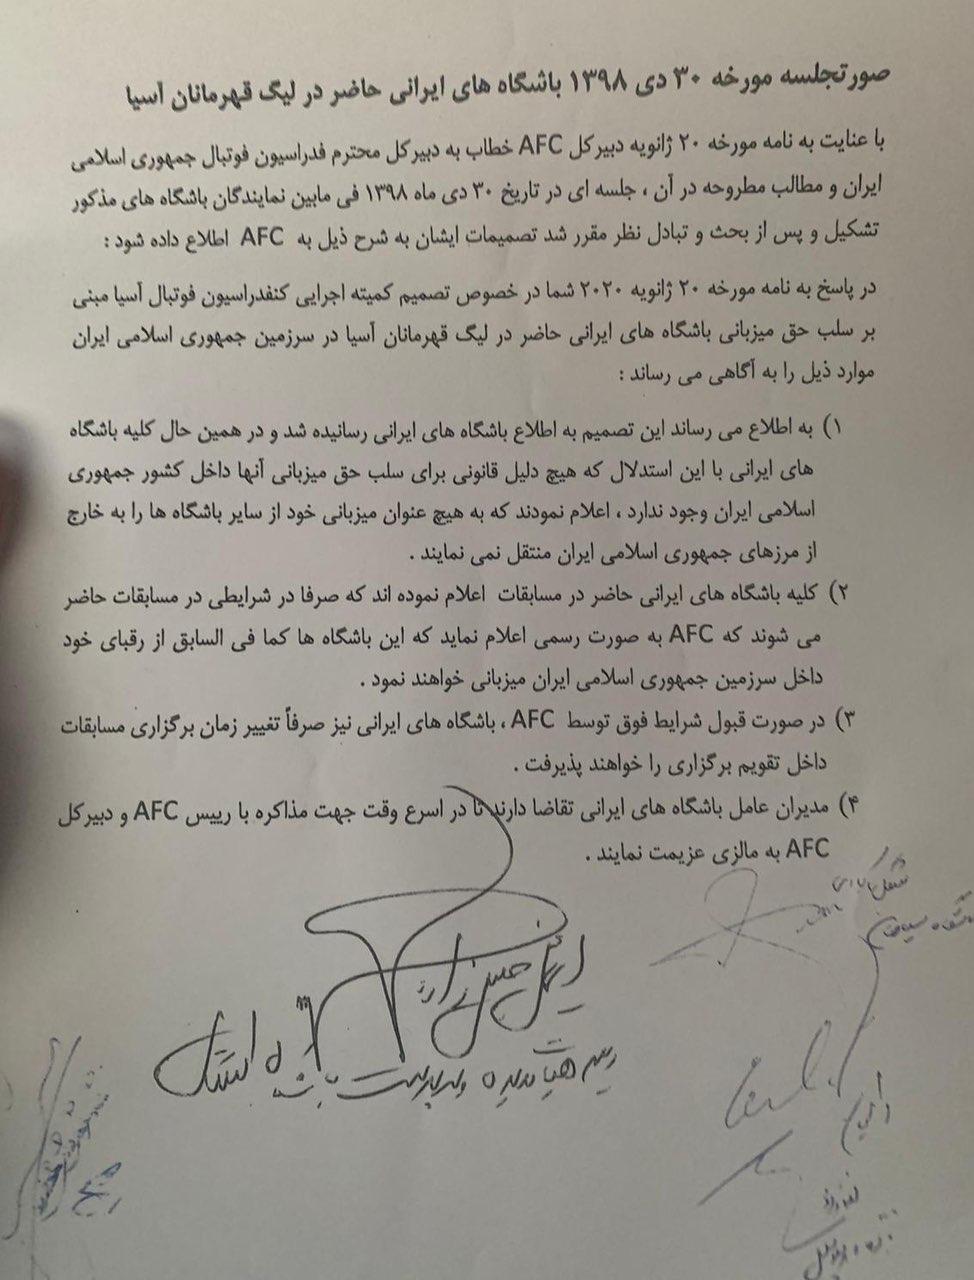 صورتجلسه مورخه ۳۰ دی ۱۳۹۸ باشگاه های ایرانی حاضر در لیگ قهرمانان آسیا
با عنایت به نامه مورخه ۲۰ ژانویه دبیرکل AFC خطاب به دبیرکل محترم فدراسیون فوتبال جمهوری اسلامی
ایران و مطالب مطروحه در آن ، جلسه ای در تاریخ ۳۰ دی ماه ۱۳۹۸ فی مابین نمایندگان باشگاه های مذکور
تشکیل و پس از بحث و تبادل نظر مقرر شد تصمیمات ایشان به شرح ذیل به AFC اطلاع داده شود :
در پاسخ به نامه مورخه ۲۰ ژانویه ۲۰۲۰ شما در خصوص تصمیم کمیته اجرایی کنفدراسیون فوتبال آسیا مبنی
بر سلب حق میزبانی باشگاه های ایرانی حاضر در لیگ قهرمانان آسیا در سرزمین جمهوری اسلامی ایران
موارد ذیل را به آگاهی می رساند :
۱) به اطلاع می رساند این تصمیم به اطلاع باشگاه های ایرانی رسانیده شد و در همین حال کلیه باشگاه
های ایرانی با این استدلال که هیچ دلیل قانونی برای سلب حق میزبانی آنها داخل کشور جمهوری
اسلامی ایران وجود ندارد ، اعلام نمودند که به هیچ عنوان میزبانی خود از سایر باشگاه ها را به خارج
از مرزهای جمهوری اسلامی ایران منتقل نمی نمایند .
۲) کلیه باشگاه های ایرانی حاضر در مسابقات اعلام نموده اند که صرفا در شرایطی در مسابقات حاضر
می شوند که AFC به صورت رسمی اعلام نماید که این باشگاه ها کما فی السابق از رقبای خود
داخل سرزمین جمهوری اسلامی ایران میزبانی خواهند نمود .
۳) در صورت قبول شرایط فوق توسط AFC ، باشگاه های ایرانی نیز صرفاً تغییر زمان برگزاری مسابقات
داخل تقویم برگزاری را خواهند پذیرفت .
۴) مدیران عامل باشگاه های ایرانی تقاضا دارند تا در اسرع وقت جهت مذاکره با رییس AFC و دبیرکل
AFC به مالزی عزیمت نمایند .
اسماعیل خلیل زاده
رییس هیات مدیره و سرپرست باشگاه استقلال